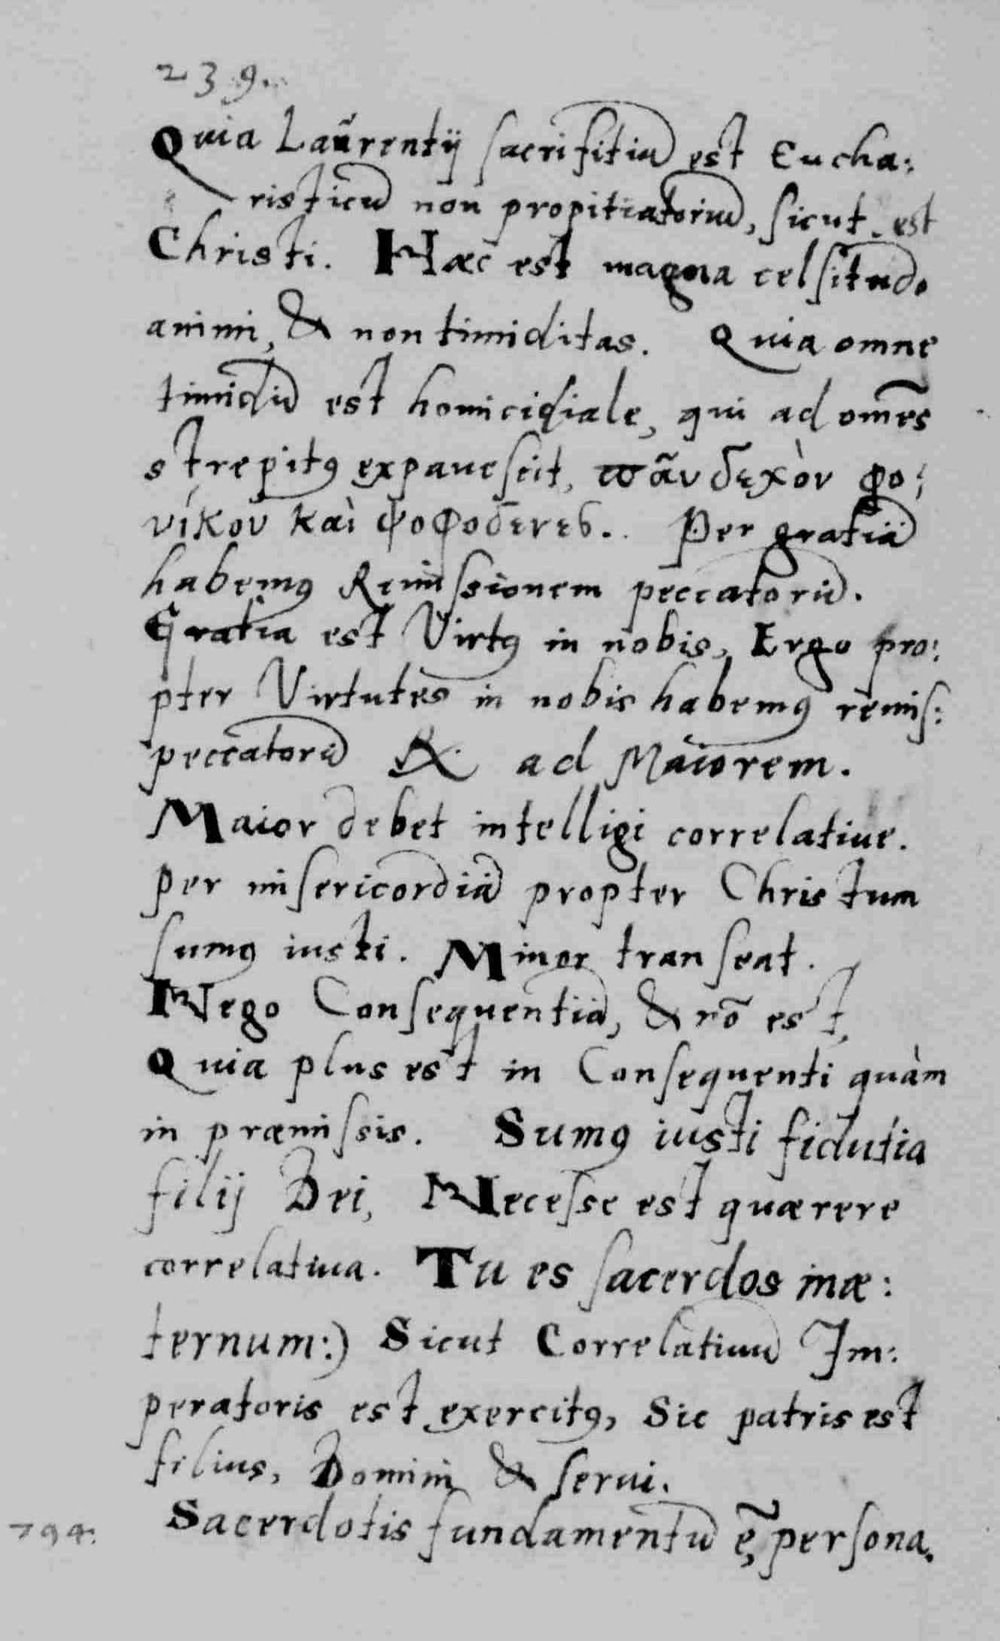 239.
Quia Laũrentij sacrifitiũ est Eucha:
risticũ non propitiatoriũ, sicut est
Christi. Hæc est magna celsitudo
animi, & non timiditas. Quia omne
timidũ est homicidiale, qui ad om̃es
strepitꝰ expauescit, πᾶν δειχὸν φο:
νίκον καὶ ψοφοδεες. Per gratiã
habemꝰ Remissionem peccatorũ.
Gratia est Virtꝰ in nobis, Ergo pro:
pter Virtutes in nobis habemꝰ remis:
peccatorũ ℞. ad Maiorem.
Maior debet intelligi correlatiue.
per misericordiã propter Christum
sumꝰ iusti. Minor transeat.
Nego Consequentiã, & rõ est,
Quia plus est in Consequenti quàm
in præmissis. Sumꝰ iusti fidutia
filij Dei, Necesse est quærere
correlatiua. Tu es sacerdos in æ:
ternum:) Sicut Correlatiuũ Im:
peratoris est exercitꝰ, Sic patris est
filius, Domini & serui.
794. Sacerdotis fundamentũ ẽ persona.